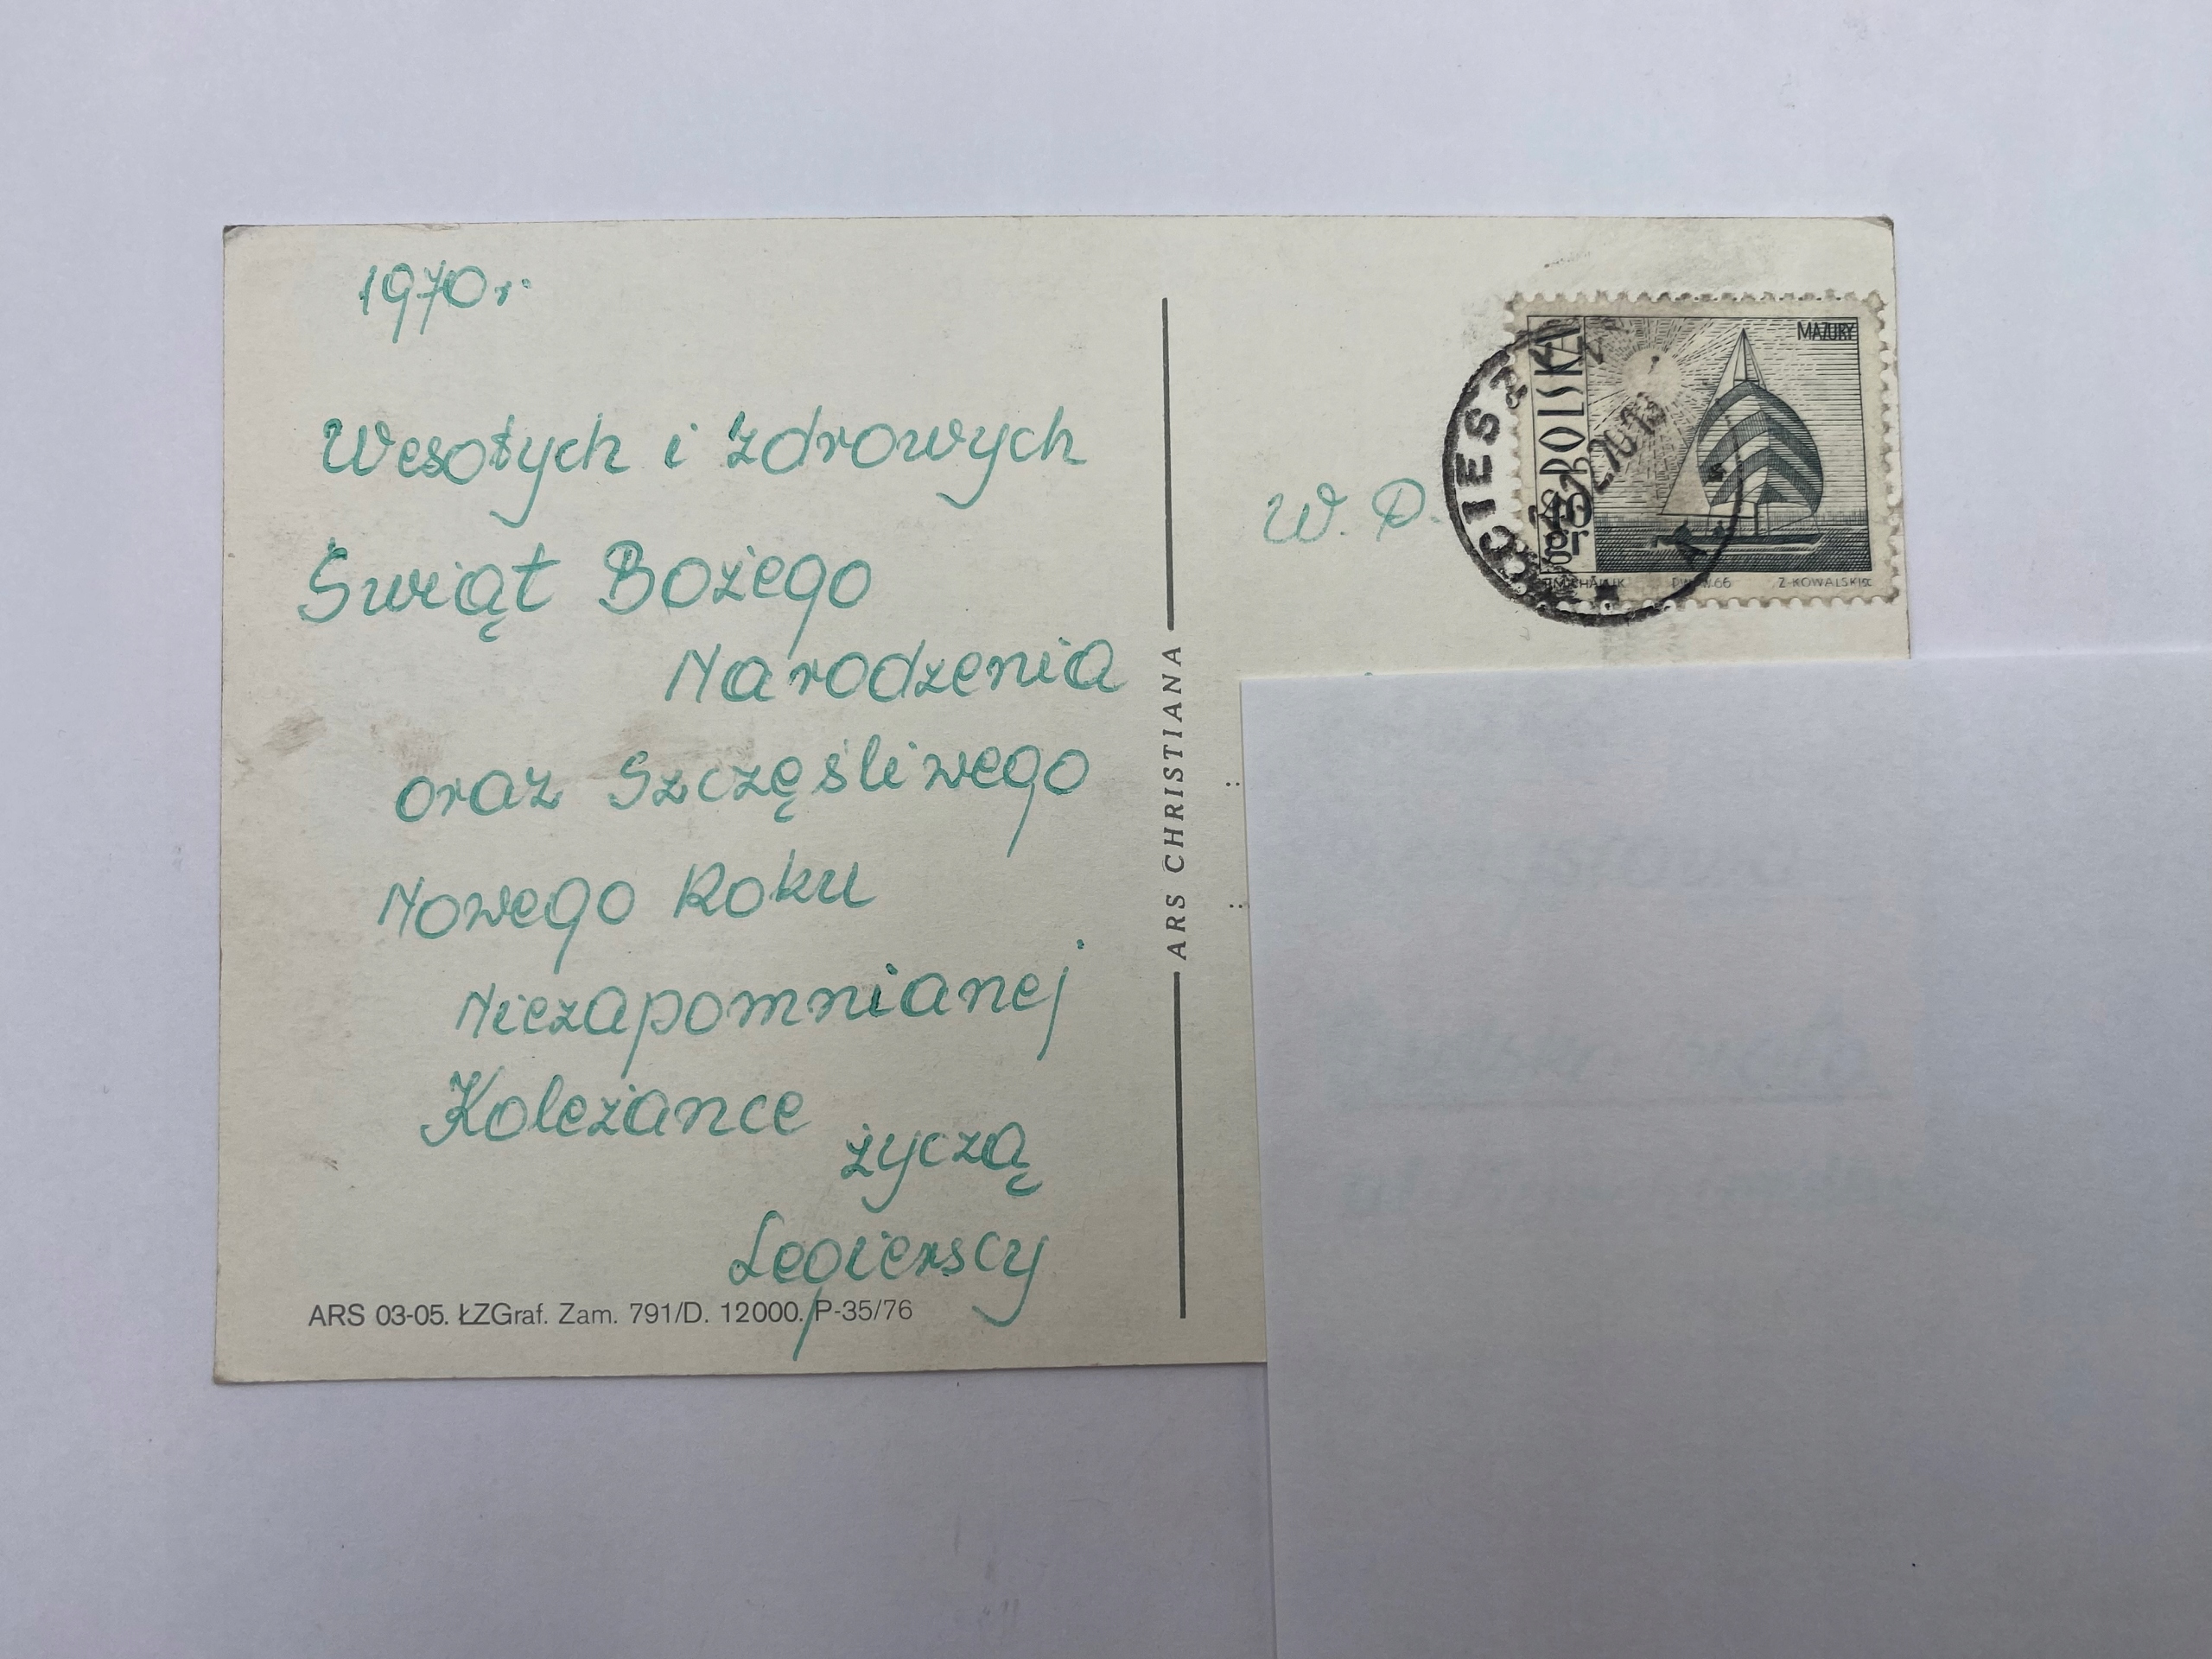 1970r.
Wesołych i zdrowych
Świąt Bożego
Narodzenia
oraz Szczęśliwego
Nowego Roku
Niezapomnianej
Koleżance
życzą
Legierscy
ARS 03-05. ŁZGraf. Zam. 791/D. 12000. P-35/76
ARS CHRISTIANA
W. P.
CIESZ
POLSKA
MAZURY
66
Z. KOWALSKI sc.